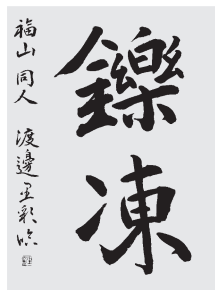 鑠凍
福山同人 渡邊里彩臨